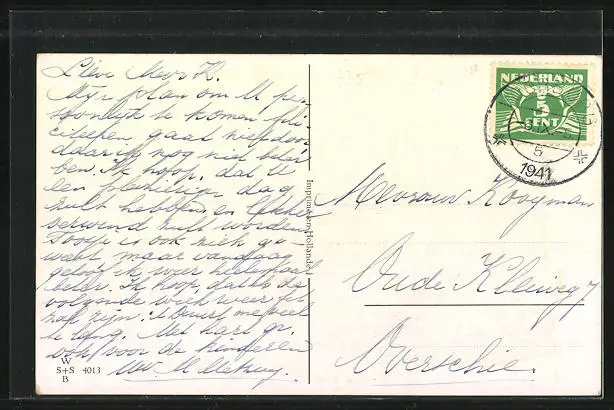 Lieve Mevr K.
Mijn plan om U per
soonlijk te komen feli
citeeren gaat niet door
daar ik nog niet beter
ben. Ik hoop, dat U
een plezierige dag
zult hebben en lekker
verwend zult worden.
is ook ziek ge-
weest maar vandaag
geloof ik, weer heelemaal
beter. Ik hoop, dat U de
volgende week weer fit
zult zijn. duurt me veel
te lang. Met hart. gr.
ook voor de kinderen
Uw
W
S+S 4013
B
Imprimé en Hollande
NEDERLAND
5
CENT
5
1941
Mevrouw Kooyman
Oude Kleiweg 7
Overschie.